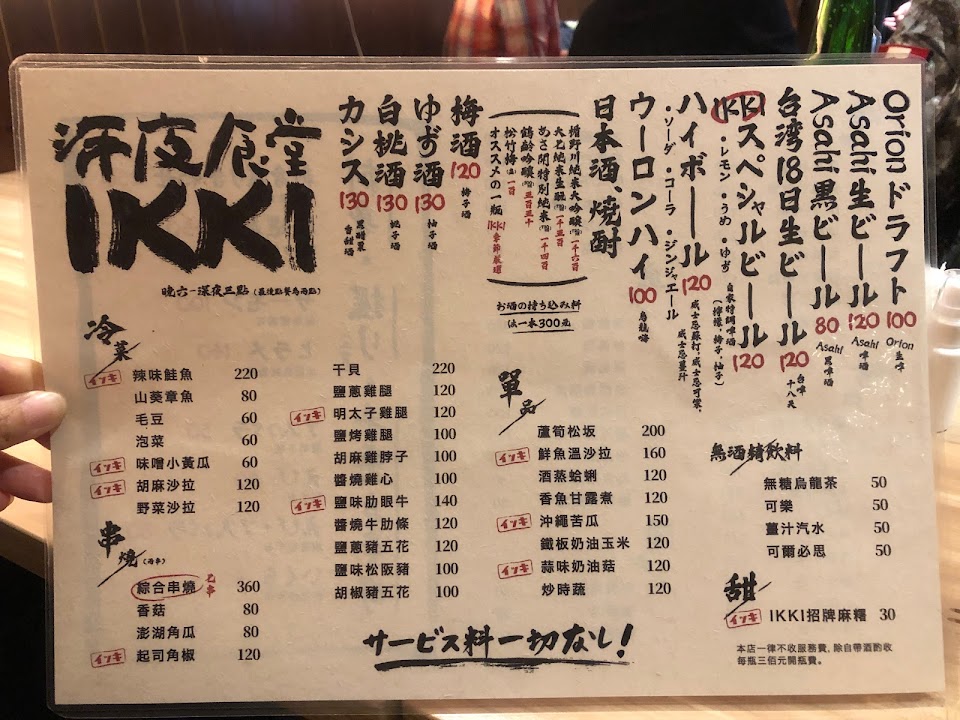 深夜食堂
IKKI
晩六-深夜三點 (最後點餐為兩點)
Orion ドラフト 100 Orion 生啤
Asahi 生ビール 120 Asahi 啤酒
Asahi 黒ビール 80 Asahi 黑啤酒
台湾18日生ビール 120 台啤十八天
IKKIスペシャルビール 120 自家特調啤酒
・レモン・うめ・ゆず (檸檬,梅子,柚子)
ハイボール 120 威士忌蘇打,威士忌可樂,威士忌薑汁
・ソーダ・コーラ・ジンジャエール
ウーロンハイ 100 烏龍嗨
日本酒、燒酎
楯野川純米大吟醸
めさ開特別純米
鶴齡吟醸
松竹梅
オススメの一瓶 IKKI季節嚴選
お酒の持ち込み料
法一本300元
梅酒 120 梅子酒
ゆず酒 130 柚子酒
白桃酒 130 桃子酒
カシス 130 黑醋栗香甜酒
冷菜
イッキ 辣味鮭魚 220
山葵章魚 80
毛豆 60
泡菜 60
イッキ 味噌小黃瓜 60
イッキ 胡麻沙拉 120
野菜沙拉 120
串燒 (兩串)
綜合串燒 七串 360
香菇 80
澎湖角瓜 80
イッキ 起司角椒 120
干貝 220
鹽蔥雞腿 120
イッキ 明太子雞腿 120
鹽烤雞腿 100
胡麻雞脖子 100
醬燒雞心 100
イッキ 鹽味肋眼牛 140
醬燒牛肋條 120
鹽蔥豬五花 120
鹽味松阪豬 100
胡椒豬五花 100
單品
蘆筍松坂 200
イッキ 鮮魚溫沙拉 160
酒蒸蛤蜊 120
香魚甘露煮 120
イッキ 沖繩苦瓜 150
鐵板奶油玉米 120
イッキ 蒜味奶油菇 120
炒時蔬 120
無酒精飲料
無糖烏龍茶 50
可樂 50
薑汁汽水 50
可爾必思 50
甜
イッキ IKKI招牌麻糬 30
サービス料一切なし!
本店一律不收服務費,除自帶酒酌收
每瓶三佰元開瓶費。